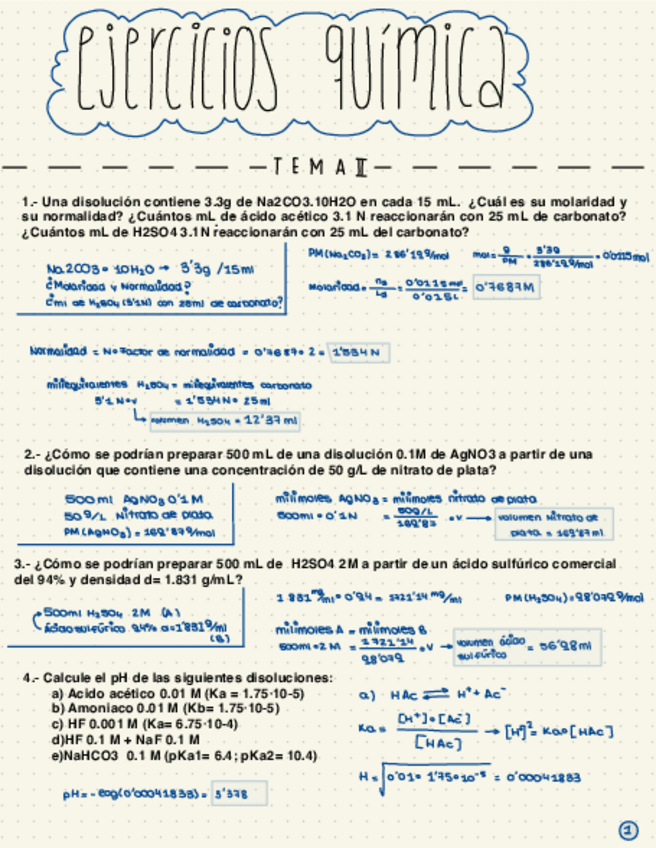 ejercicios química
TEMA II
1.- Una disolución contiene 3.3g de Na2CO3.10H2O en cada 15 mL. ¿Cuál es su molaridad y
su normalidad? ¿Cuántos mL de ácido acético 3.1 N reaccionarán con 25 mL de carbonato?
¿Cuántos mL de H2SO4 3.1N reaccionarán con 25 mL del carbonato?
PM(Na2CO3) = 286'19g/mol mol = g/PM = 3'3g/286'19g/mol = 0'0115mol
Na2CO3 • 10H2O → 3'3g /15ml
¿Molaridad y Normalidad?
¿ml de H2SO4 (3'1N) con 25ml de carbonato?
Molaridad = = 0'0115mol/0'015L = 0'7687M
Normalidad = N•Factor de normalidad = 0'7687 • 2 = 1'534N
miliequivalentes H2SO4 = miliequivalentes carbonato
3'1N•v = 1'534N • 25ml
volumen H2SO4 = 12'37ml
2.- ¿Cómo se podrían preparar 500 mL de una disolución 0.1M de AgNO3 a partir de una
disolución que contiene una concentración de 50 g/L de nitrato de plata?
500ml AgNO3 0'1M
50g/L Nitrato de plata
PM(AgNO3) = 169'87g/mol
milimoles AgNO3 = milimoles nitrato de plata
500ml • 0'1N = 50g/L/169'87 • v → volumen Nitrato de
plata = 169'87ml
3.- ¿Cómo se podrían preparar 500 mL de H2SO4 2M a partir de un ácido sulfúrico comercial
del 94% y densidad d= 1.831 g/mL?
500ml H2SO4 2M (A)
ácido sulfúrico 94% d=1'831g/ml
(B)
1831mg/ml • 0'94 = 1721'14mg/ml PM(H2SO4) = 98'079g/mol
milimoles A = milimoles B
500ml • 2M = 1721'14/98'079 • v → volumen ácido sulfúrico = 56'98ml
4.- Calcule el pH de las siguientes disoluciones:
a) Acido acético 0.01 M (Ka = 1.75·10-5)
b) Amoniaco 0.01 M (Kb= 1.75·10-5)
c) HF 0.001 M (Ka= 6.75·10-4)
d)HF 0.1 M + NaF 0.1 M
e)NaHCO3 0.1 M (pKa1= 6.4; pKa2= 10.4)
a) HAc ⇌ H⁺ + Ac⁻
Ka = [H⁺]•[Ac⁻]/[HAc] → [H⁺]² = Ka•[HAc]
H = √0'01 • 1'75•10⁻⁵ = 0'00041833
pH = -log(0'00041833) = 3'378
1